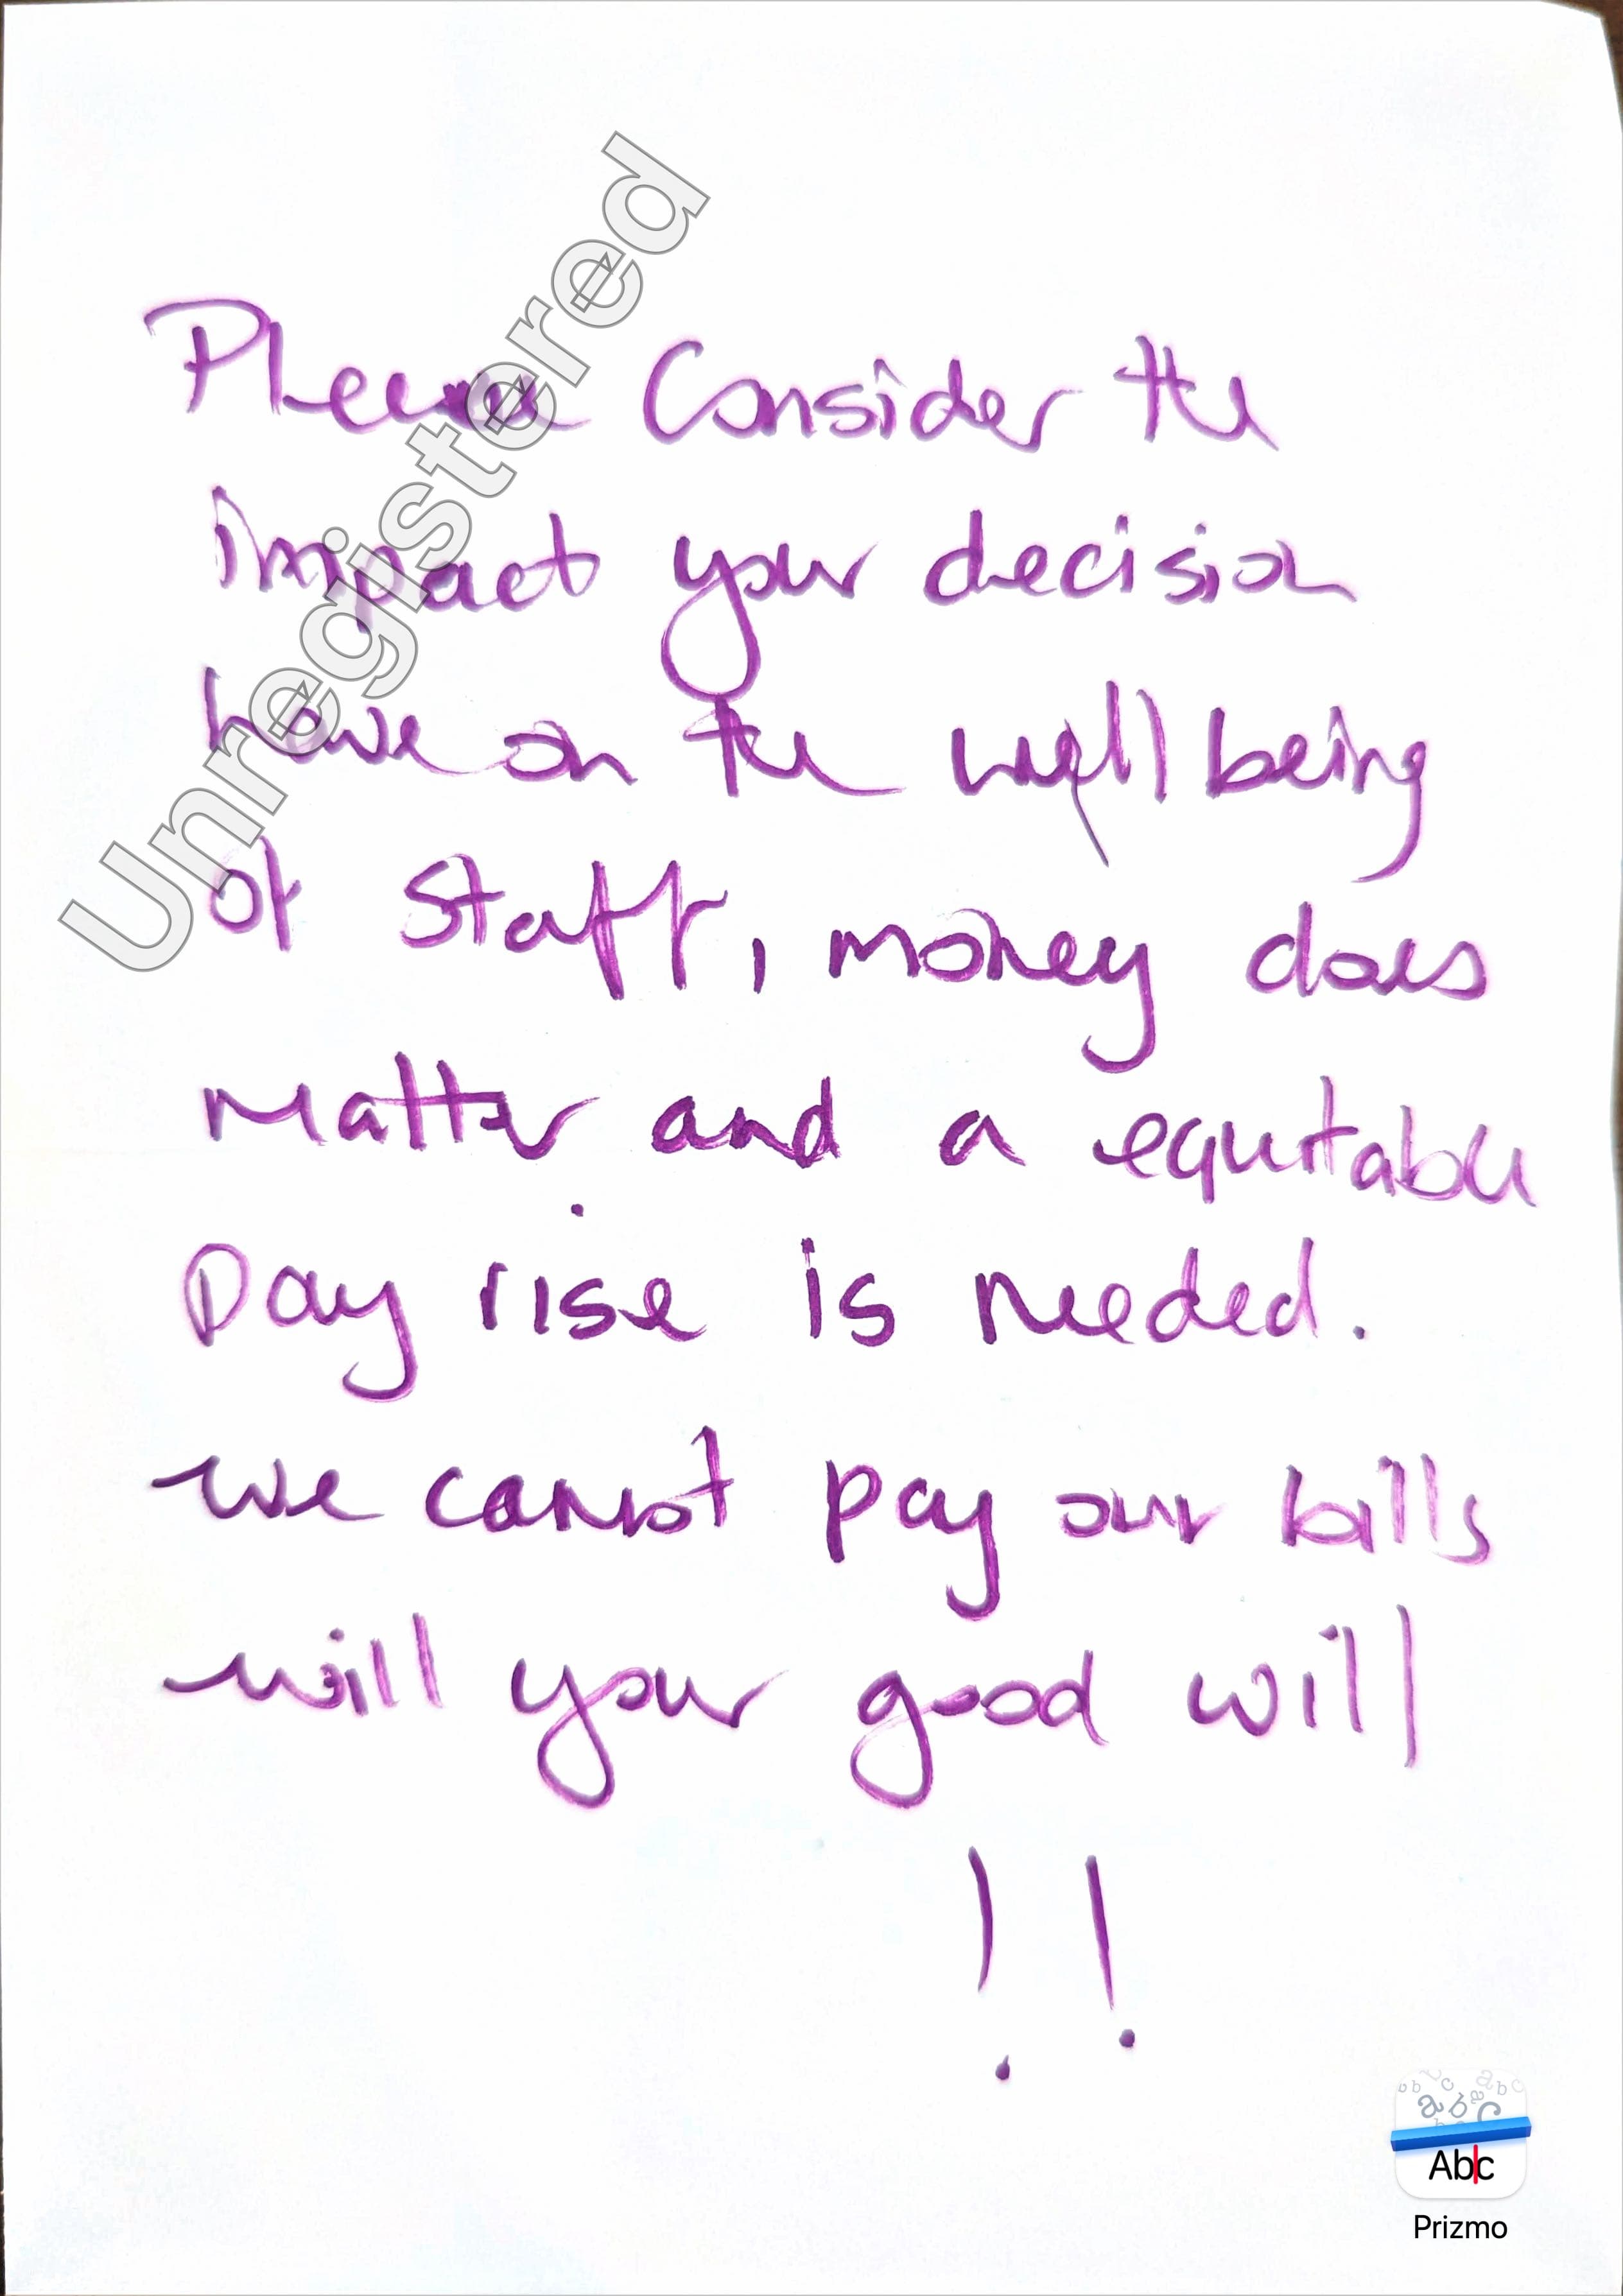 Please Consider the
impact your decision
have on the wellbeing
of staff, money does
matter and a equitable
Pay rise is needed.
we cannot pay our bills
will your good will
!!
Unregistered
Abc
Prizmo